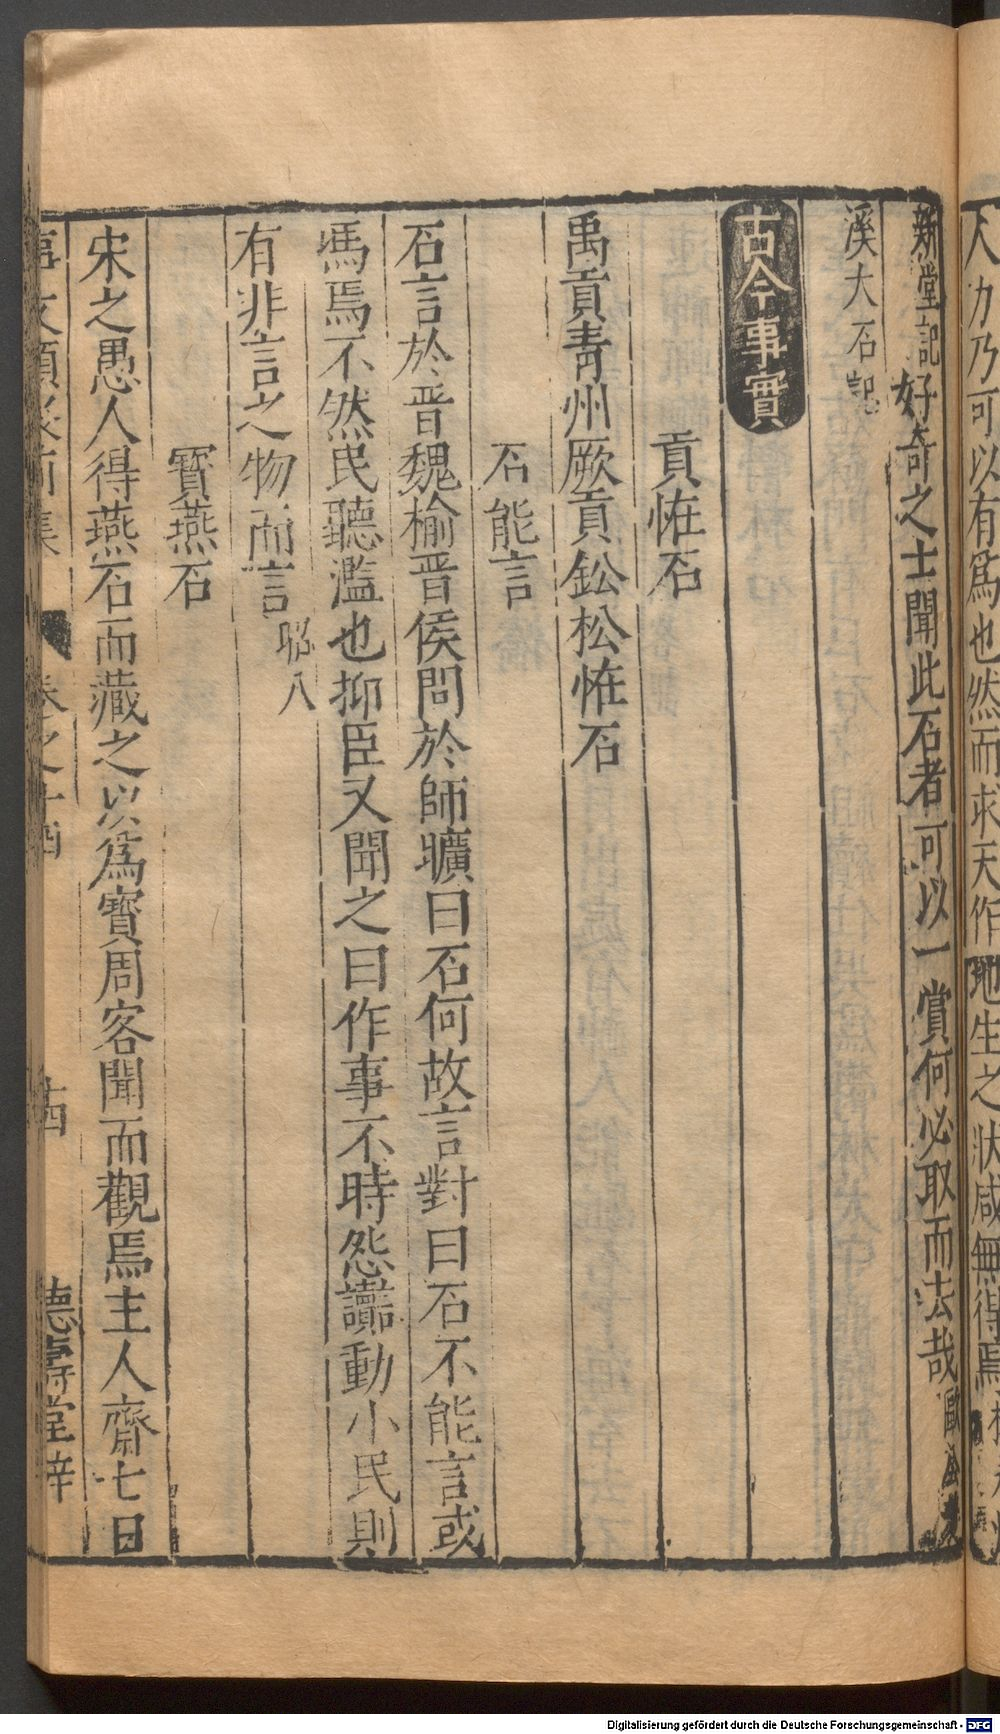 人力乃可以有爲也然而求天作地生之狀咸無得焉
新堂記好奇之士聞此石者可以一賞何必取而去哉歐
溪大石記
古今事實
貢恠石
禹貢青州厥貢鈆松恠石
石能言
石言於晉魏榆晉侯問於師曠曰石何故言對曰石不能言或
馮焉不然民聽濫也抑臣又聞之曰作事不時怨讟動小民則
有非言之物而言昭八
寳燕石
宋之愚人得燕石而藏之以爲寳周客聞而觀焉主人齋七日
事文類聚前集 卷之十四 十四 德壽堂梓
Digitalisierung gefördert durch die Deutsche Forschungsgemeinschaft - DFG